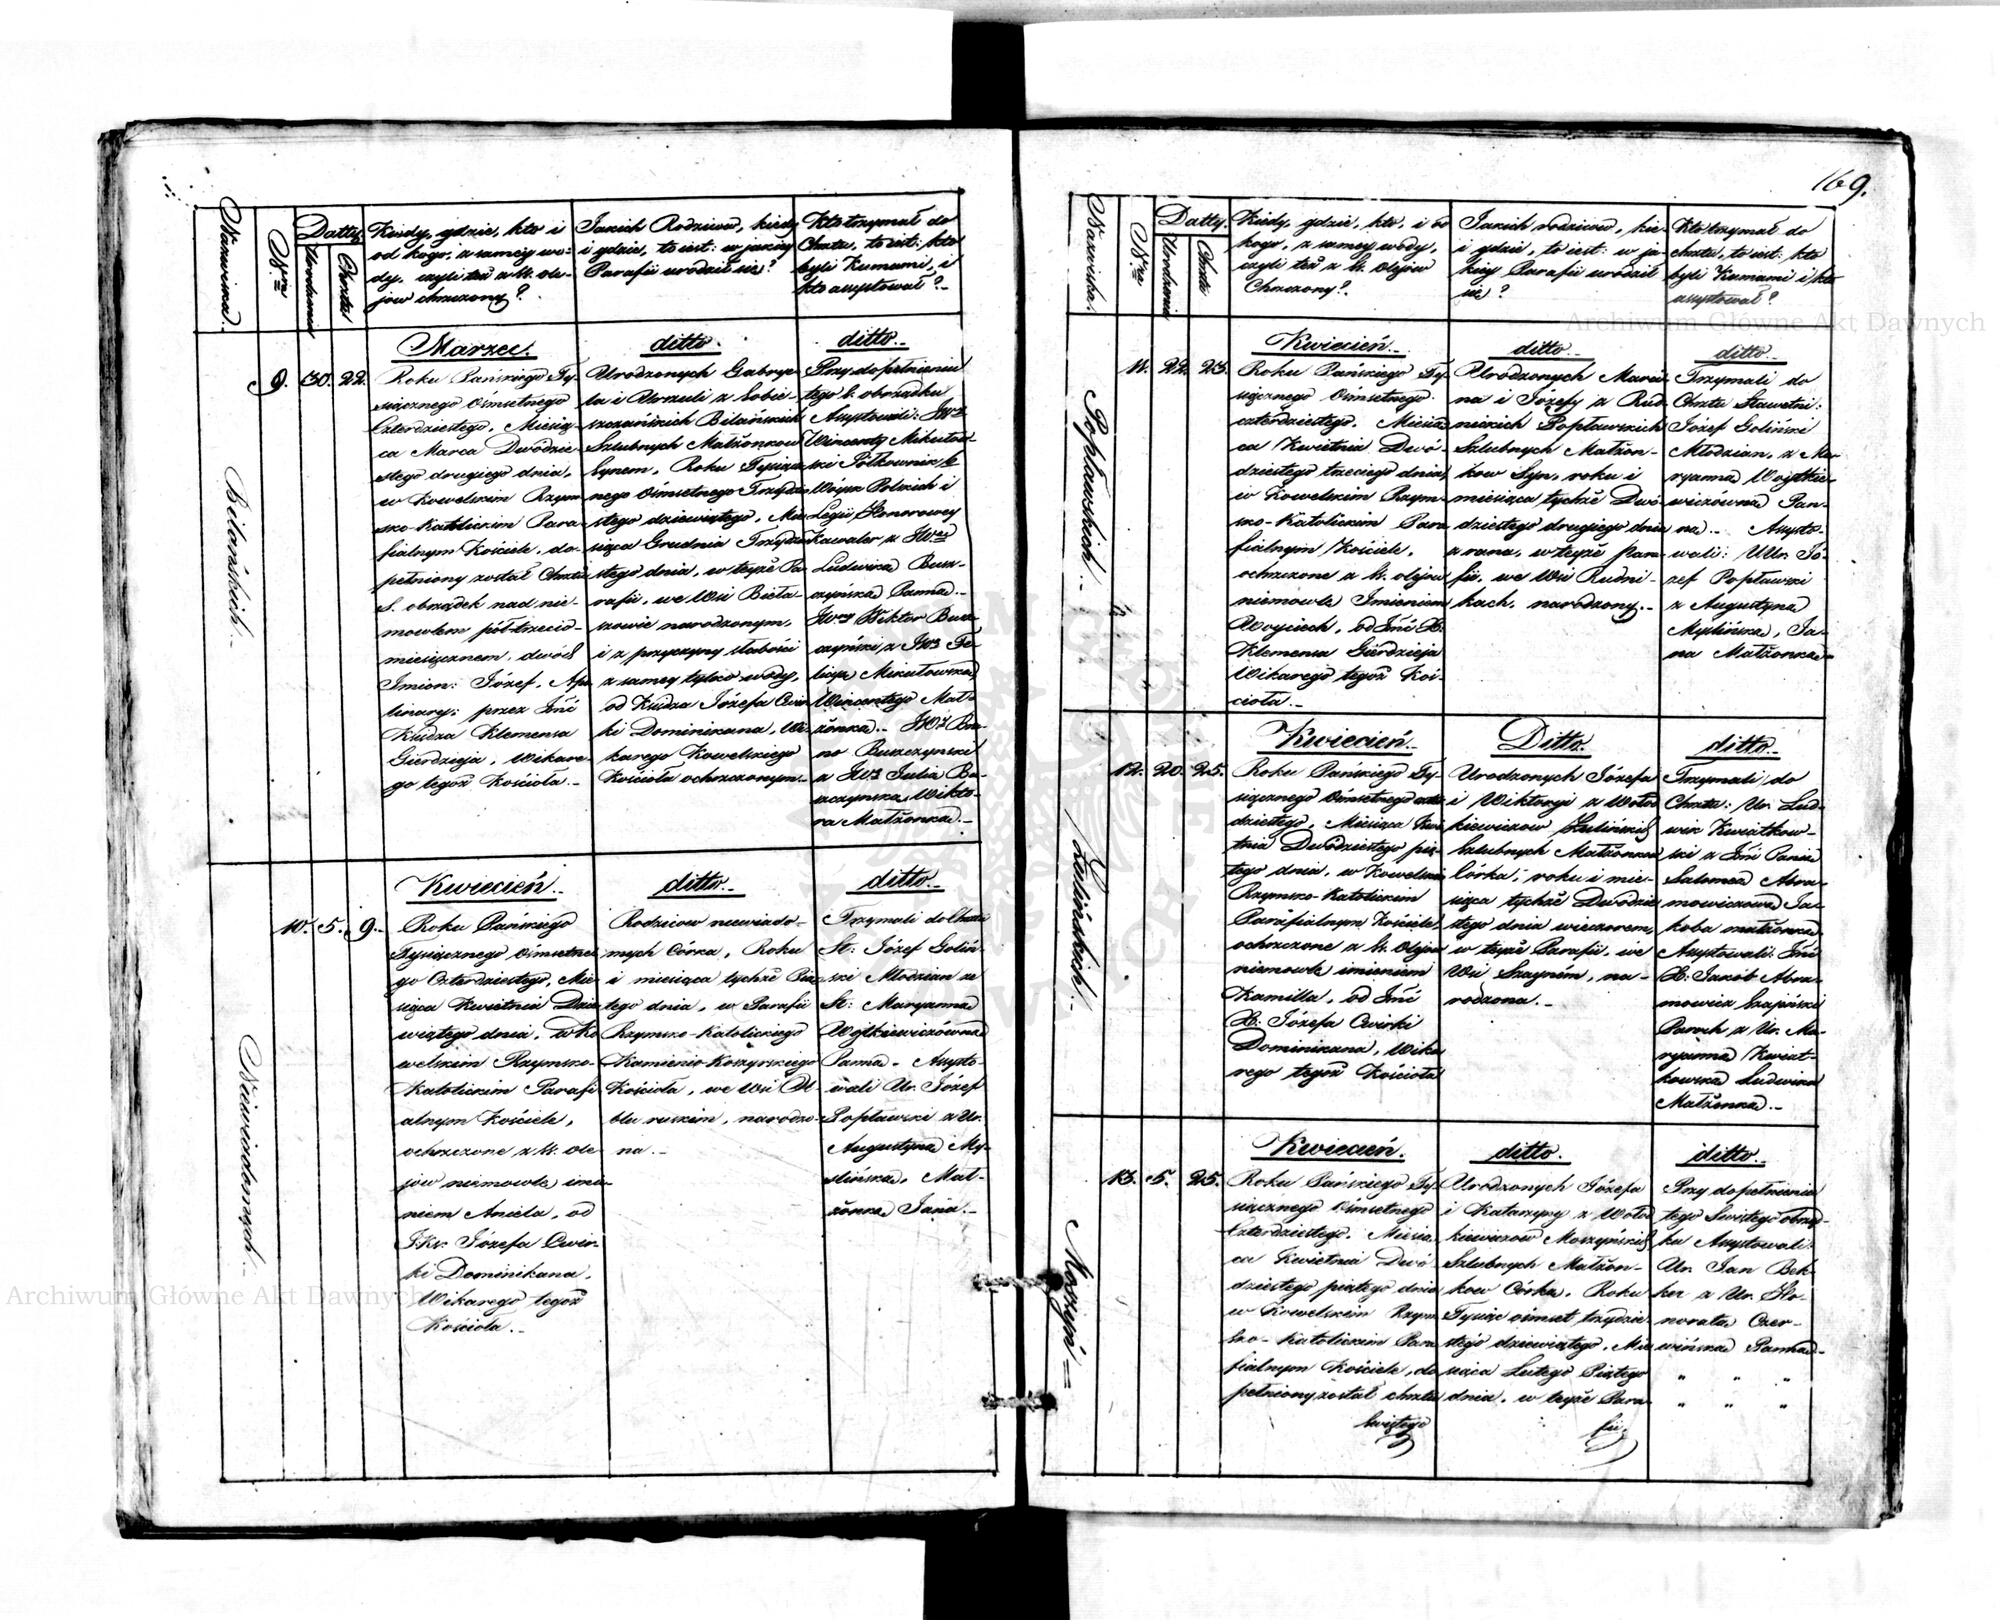 Nazwiska.
Nra
Datty
Urodzenia
Chrztu
Kiedy, gdzie, kto i
od kogo; z samey wo-
dy, czyli też z St. ole-
jow chrzczony?
Jakich Rodziców, kiedy
i gdzie, to iest: w jakiey
Parafii urodził się?
Kto trzymał do
Chrztu, to iest: kto
byli Kumami, i
kto assystował?
Bilańskich.
9. 30. 22.
Marzec.
Roku Pańskiego Ty-
siącznego Ośmsetnego
Czterdziestego, Miesią-
ca Marca Dwódzie-
stego drugiego dnia,
w Kowelskim Rzym-
sko-Katolickim Para-
fialnym Kościele, do-
pełniony został Chrztu
S. obrządek nad nie-
mowlem pół-trzecio-
miesięcznem, dwóch
Imion: Józef, Apo-
linary; przez Jmć
Xiędza Klemensa
Gierdzieja, Wikare-
go tegoż Kościoła.
ditto.
Urodzonych Gabrye-
la i Urszuli z Sobie-
szczańskich Bilańskich
Szlubnych Małżonkow
Synem, Roku Tysiącz-
nego Ośmsetnego Trzydzie-
stego dziewiątego, Mie-
siąca Grudnia Trzydzie-
stego dnia, w teyże Pa-
rafii, we Wsi Bieła-
szowie narodzonym,
i z przyczyny słabości
z samey tylko wody,
od Xiędza Józefa Cwir-
ki Dominikana, Wi-
karego Kowelskiego
Kościoła ochrzczonym.
ditto.
Przy dopełnieniu
tego S. obrządku
Assystowali: JWy
Wincenty Mikułow-
ski Półkownik b.
Woysk Polskich i
Legii Honorowey
Kawaler z JWną
Ludwiką Busz-
czyńską Panną.
JWy Wiktor Busz-
czyński z JWą Fe-
licyą Mikułowską,
Wincentego Mał-
żonką. JWy Bru-
no Buszczyński
z JWą Julią Bu-
szczyńską, Wikto-
ra Małżonką.
Niewiadomych.
10. 5. 9.
Kwiecień.
Roku Pańskiego
Tysiącznego Ośmsetne-
go Czterdziestego, Mie-
siąca Kwietnia Dzie-
wiątego dnia, w Ko-
welskim Rzymsko-
Katolickim Parafi-
alnym Kościele,
ochrzczone z St. ole-
jow niemowle imie-
niem Aniela, od
J.X. Józefa Cwir-
ki Dominikana,
Wikarego tegoż
Kościoła.
ditto.
Rodziców niewiado-
mych Córka, Roku
i miesiąca tychże Pią-
tego dnia, w Parafii
Rzymsko-Katolickiego
Kamienio-Koszyrskiego
Kościoła, we Wsi Ol-
blu ruskim, narodzo-
na.
ditto.
Trzymali do Chrztu
St: Józef Goliń-
ski Młodzian ze
St: Maryanną
Woytkiewiczówną
Panną. Assysto-
wali Ur. Józef
Popławski z Ur.
Augustyną My-
ślińską, Mał-
żonką Jana.
169.
Nazwiska.
Nra
Datty.
Urodzenia
Chrztu
Kiedy, gdzie, kto, i od
kogo, z samey wody,
czyli też z St. Olejów
Chrzczony?
Jakich rodziców, kie-
i gdzie, to iest: w ja-
kiey Parafii urodził
się?
Kto trzymał do
chrztu, to iest: kto
byli Kumami i kto
assystował?
Popławskich.
11. 22. 23.
Kwiecień.
Roku Pańskiego Ty-
siącznego Ośmsetnego
czterdziestego, Miesią-
ca Kwietnia Dwó-
dziestego trzeciego dnia,
w Kowelskim Rzym-
sko-Katolickim Para-
fialnym Kościele,
ochrzczone z St. olejow
niemowle Imieniem
Woyciech, od Jmć X.
Klemensa Gierdzieja
Wikarego tegoż Koś-
cioła.
ditto.
Urodzonych Marci-
na i Józefy z Rud-
nickich Popławskich
Szlubnych Małżon-
kow Syn, roku i
miesiąca tychże Dwó-
dziestego drugiego dnia
z rana, w teyże para-
fii, we Wsi Rudni-
kach, narodzony.
ditto.
Trzymali do
Chrztu Sławetni:
Józef Goliński
Młodzian, z Ma-
ryanną Woytkie-
wiczówną Pan-
ną. Assysto-
wali: Ur. Jó-
zef Popławski
z Augustyną
Myślińską, Ja-
na Małżonką.
Zulińskich.
12. 20. 25.
Kwiecień.
Roku Pańskiego Ty-
siącznego Ośmsetnego czter-
dziestego, Miesiąca Kwie-
tnia Dwódziestego pią-
tego dnia, w Kowelskim
Rzymsko-Katolickim
Parafialnym Kościele,
ochrzczone z St. Olejow
niemowle imieniem
Kamilla, od Jmć
X. Józefa Cwirki
Dominikana, Wika-
rego tegoż Kościoła
Ditto.
Urodzonych Józefa
i Wiktoryi z Wołod-
kiewiczow Zulińskich
Szlubnych Małżonkow
Córka; roku i mie-
siąca tychże Dwódzie-
stego dnia wieczorem,
w teyże Parafii, we
Wsi Szayním, na-
rodzona.
ditto.
Trzymali do
Chrztu: Ur. Lud-
wik Kwiatkow-
ski z Jmć Panią
Salomeą Abra-
mowiczową Ja-
koba małżonką.
Assystowali: Jmć
X. Jakób Abra-
mowicz Szajński
Paroch z Ur. Ma-
ryanną Kwiat-
kowską Ludwika
Małżonką.
Moszyń
13. 5. 25.
Kwiecień.
Roku Pańskiego Ty-
siącznego Ośmsetnego
Czterdziestego, Miesią-
ca Kwietnia Dwó-
dziestego piątego dnia
w Kowelskim Rzym-
sko-Katolickim Para-
fialnym Kościele, do-
pełniony został chrztu
świętego
ditto.
Urodzonych Józefa
i Katarzyny z Wołod-
kiewiczow Moszyńskich
Szlubnych Małżon-
kow Córka, Roku
Tysiąc ośmset trzydzie-
stego dziewiątego, Mie-
siąca Lutego Piątego
dnia, w teyże Para-
fii
ditto.
Przy dopełnieniu
tego Swiętego obrząd-
ku Assystowali:
Ur. Jan Bek-
ker z Ur. Ho-
noratą Czer-
wińską Panną.
" " "
" " "
Archiwum Główne Akt Dawnych
Archiwum Główne Akt Dawnych